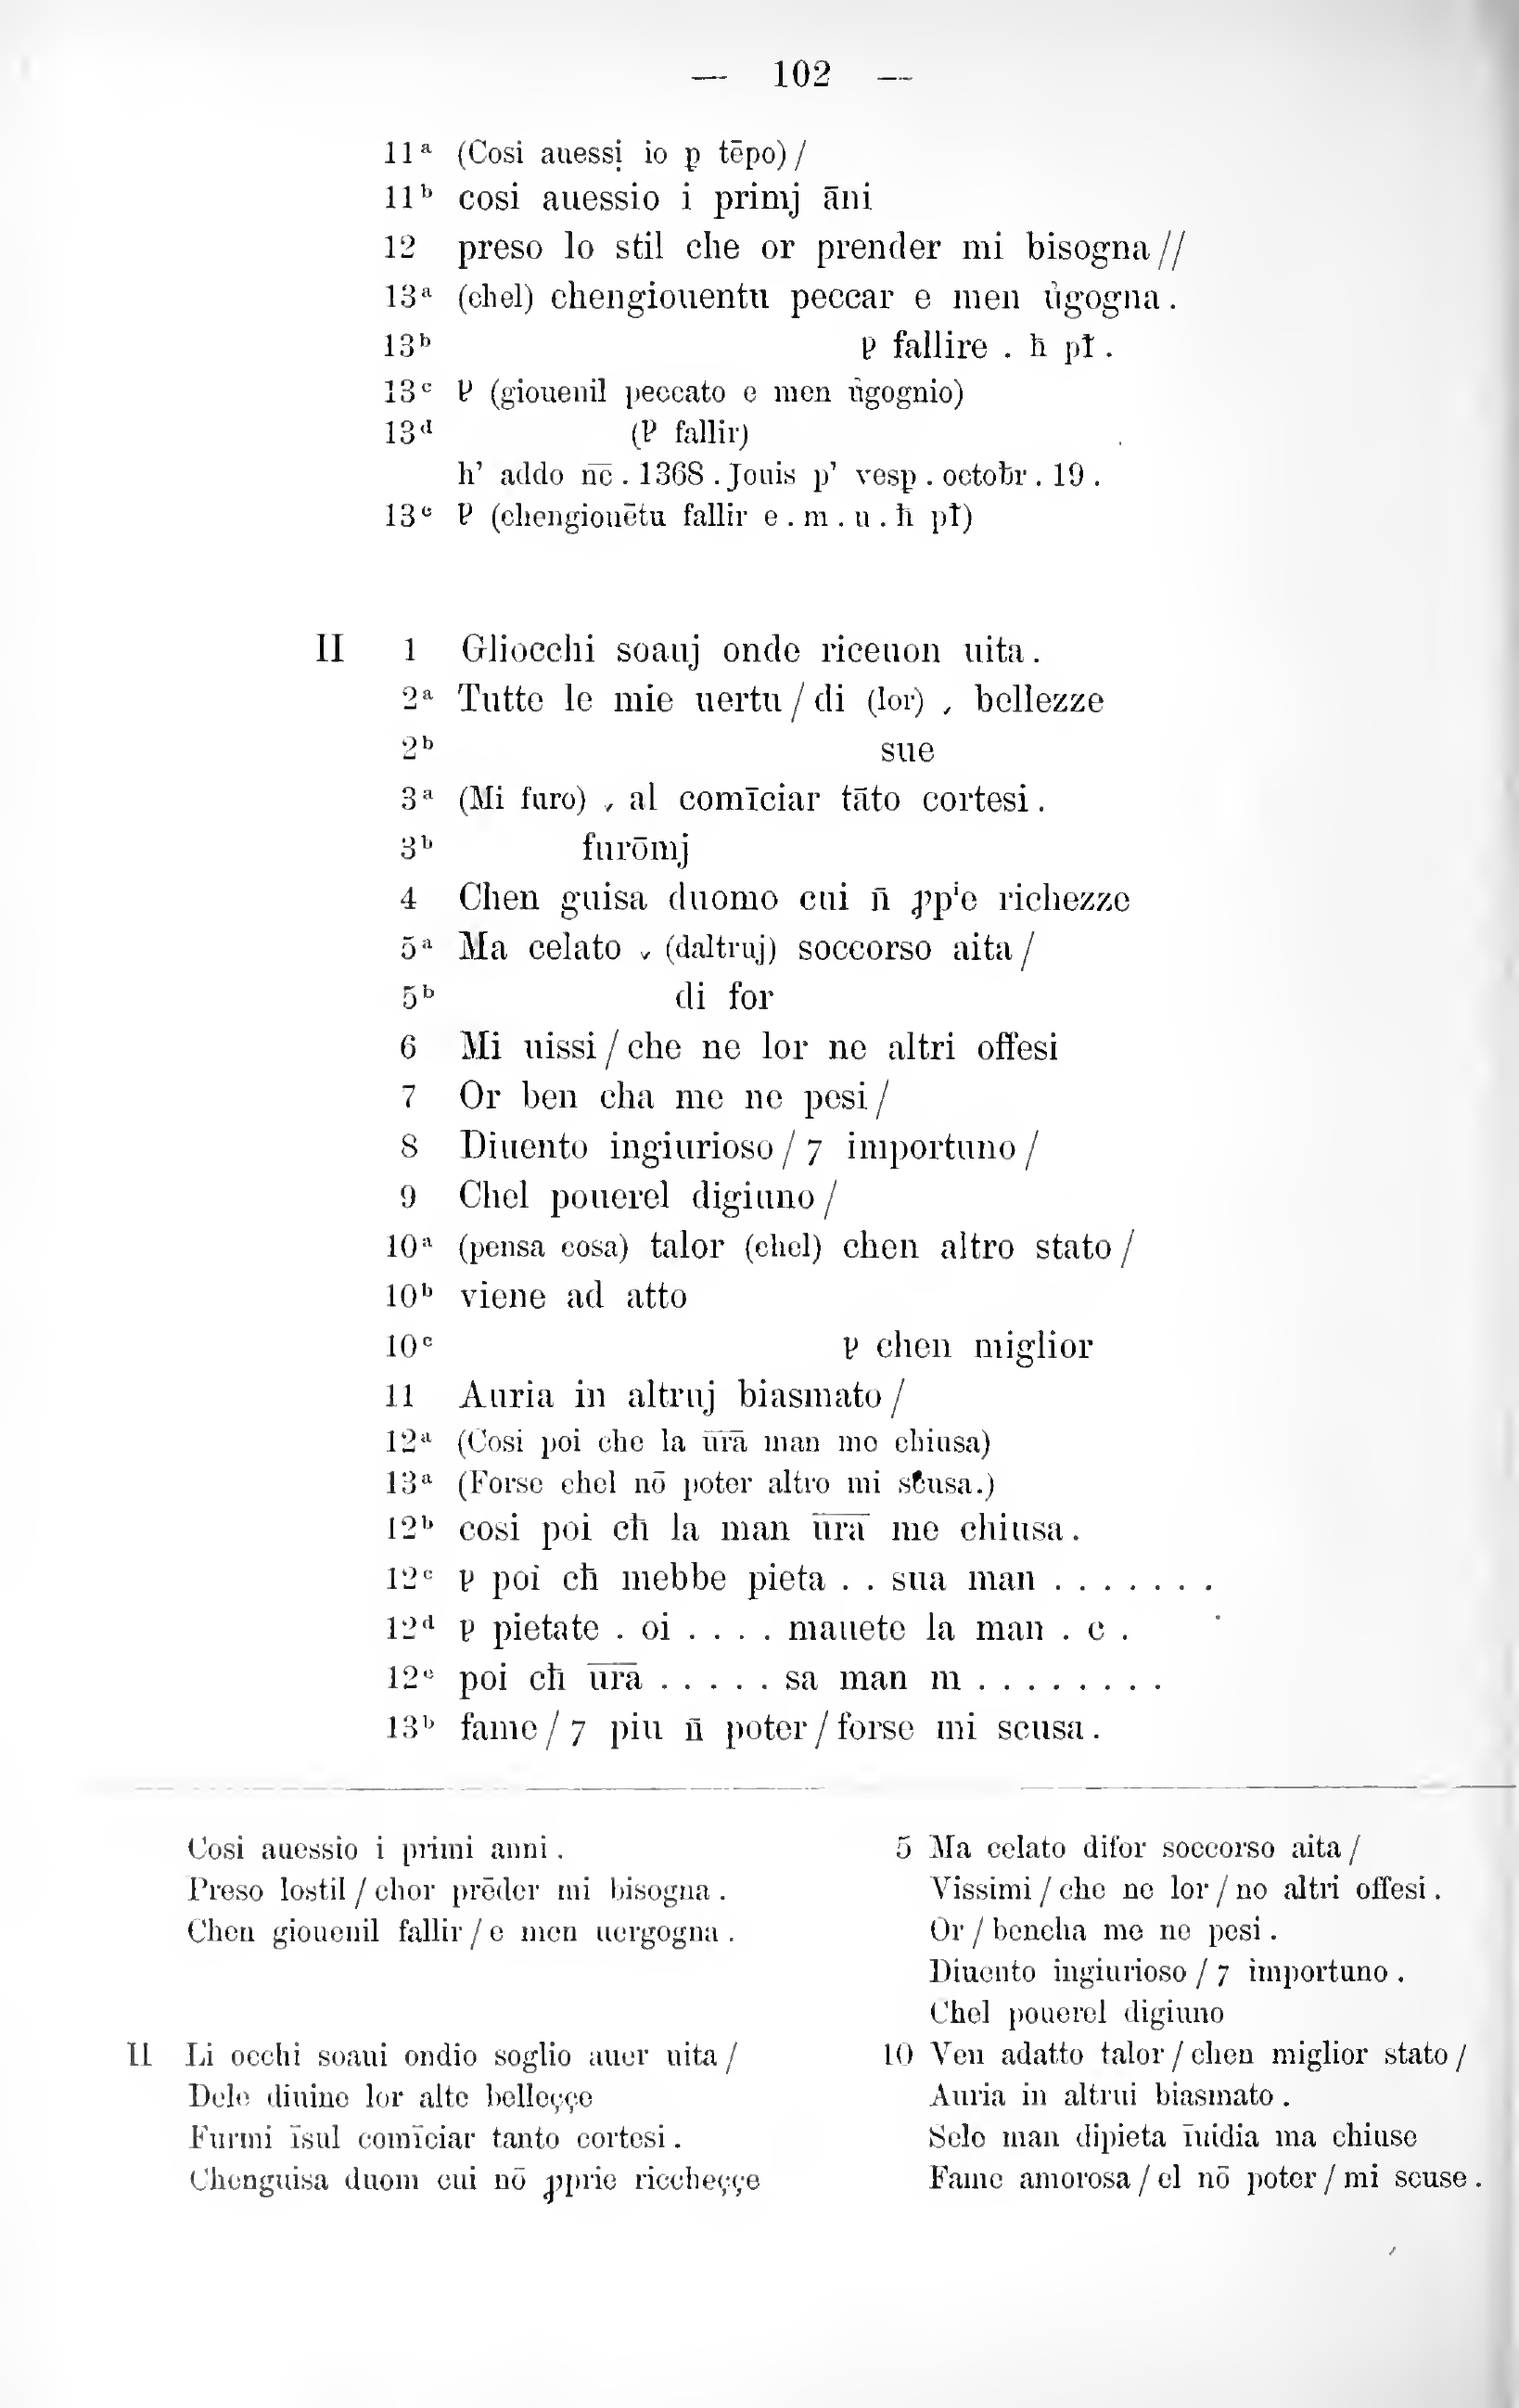 — 102 —
11ᵃ (Cosi auessị io ꝑ tēpo) /
11ᵇ cosi auessio i primj āni
12 preso lo stil che or prender mi bisogna //
13ᵃ (chel) chengiouentu peccar e men u̓gogna .
13ᵇ ꝑ fallire . ħ pt̄ .
13ᶜ ꝑ (giouenil peccato e men u̓gognio)
13ᵈ (ꝑ fallir)
h’ addo n̄c̄ . 1368 . Jouis p’ vesꝑ . octob̄r . 19 .
13ᵉ ꝑ (chengiouētu fallir e . m . u . ħ pt̄)
II 1 Gliocchi soauj onde riceuon uita .
2ᵃ Tutte le mie uertu / di (lor) ˏ bellezze
2ᵇ sue
3ᵃ (Mi furo) ˏ al comīciar tāto cortesi .
3ᵇ furōmj
4 Chen guisa duomo cui n̄ ꝓpⁱe richezze
5ᵃ Ma celato ˬ (daltruj) soccorso aita /
5ᵇ di for
6 Mi uissi / che ne lor ne altri offesi
7 Or ben cha me ne pesi /
8 Diuento ingiurioso / 7 importuno /
9 Chel pouerel digiuno /
10ᵃ (pensa cosa) talor (chel) chen altro stato /
10ᵇ viene ad atto
10ᶜ ꝑ chen miglior
11 Auria in altruj biasmato /
12ᵃ (Cosi poi che la ūr̄ā man me chiusa)
13ᵃ (Forse chel nō poter altro mi scusa.)
12ᵇ cosi poi cħ la man ūr̄ā me chiusa .
12ᶜ ꝑ poi cħ mebbe pieta . . sua man . . . . . . .
12ᵈ ꝑ pietate . oi . . . . mauete la man . c .
12ᵉ poi cħ ūr̄ā . . . . . sa man m . . . . . . . .
13ᵇ fame / 7 piu n̄ poter / forse mi scusa .
Cosi auessio i primi anni .
Preso lostil / chor prēder mi bisogna .
Chen giouenil fallir / e men uergogna .
II Li occhi soaui ondio soglio auer uita /
Dele diuine lor alte belleççe
Furmi īsul comīciar tanto cortesi .
Chenguisa duom cui nō ꝓprie riccheççe
5 Ma celato difor soccorso aita /
Vissimi / che ne lor / no altri offesi .
Or / bencha me ne pesi .
Diuento ingiurioso / 7 importuno .
Chel pouerel digiuno
10 Ven adatto talor / chen miglior stato /
Auria in altrui biasmato .
Sele man dipieta īuidia ma chiuse
Fame amorosa / el nō poter / mi scuse .